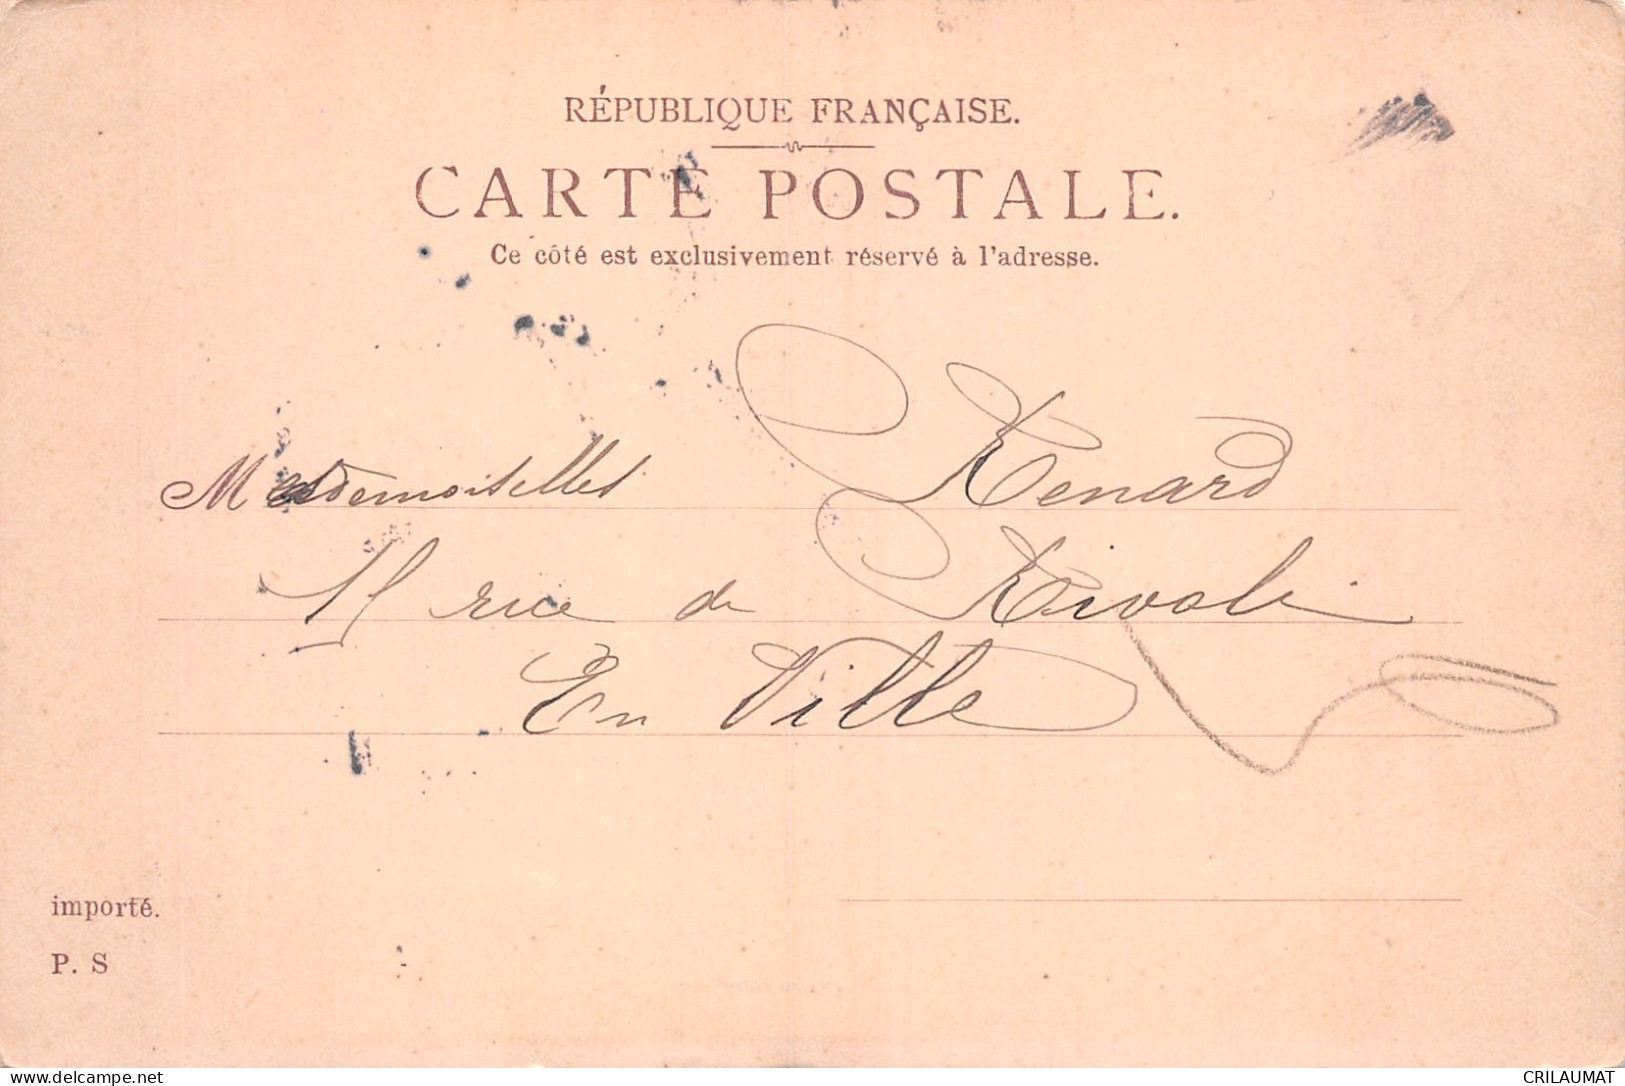 RÉPUBLIQUE FRANÇAISE.
CARTE POSTALE.
Ce côté est exclusivement réservé à l'adresse.
Mesdemoiselles Renard
rue de Rivoli
En Ville
importé.
P. S
delcampe.net
CRILAUMAT